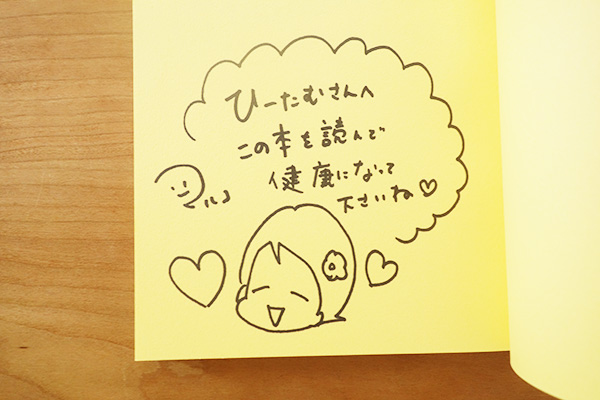 ひーたむさんへ
この本を読んで
健康になって
下さいね♡